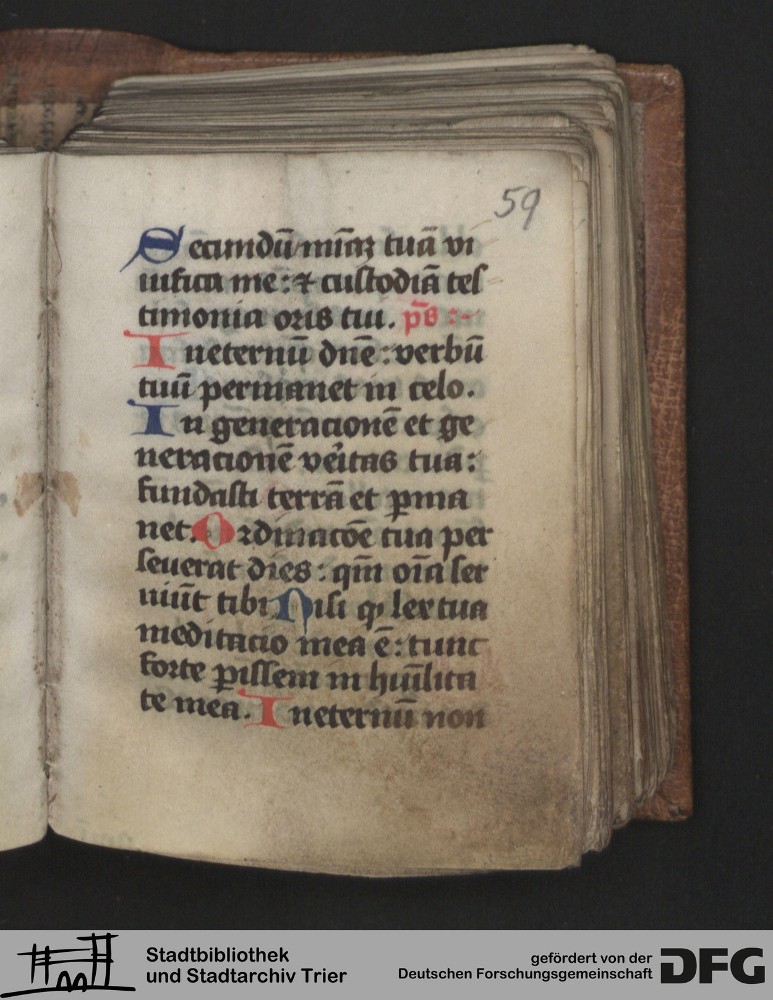 59
Secundū mīaꝫ tuā vi
uifica me : ⁊ custodiā tes
timonia oris tui. p̄s :-
Ineternū dn̄e : verbū
tuū permanet in celo.
In generacionē et ge
neracionē ve͛itas tua :
fundasti terrā et ꝑma
net. Ordinacōe tua per
seuerat dies : qm̄ oīa ser
uiūt tibi Nisi ꝙ lex tua
meditacio mea ē : tunc
forte ꝑissem in hūilita
te mea. Ineternū non
Stadtbibliothek
und Stadtarchiv Trier
gefördert von der
Deutschen Forschungsgemeinschaft
DFG